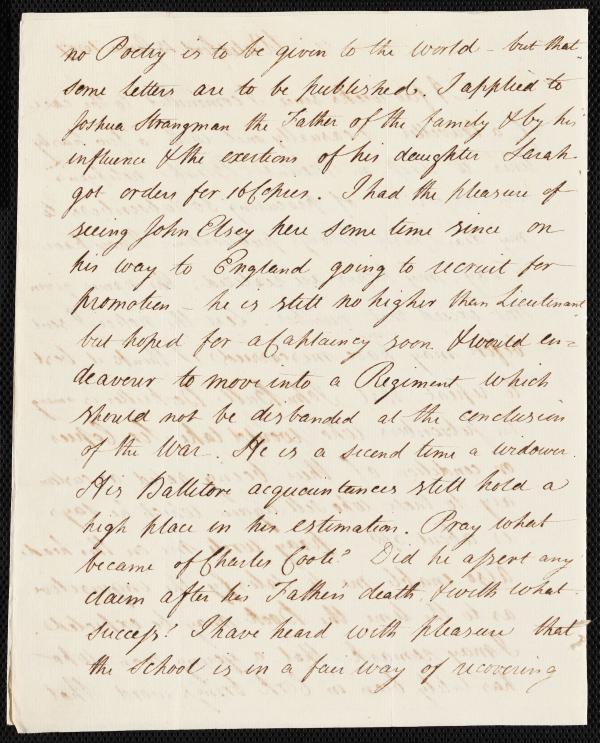 no Poetry is to be given to the world – but that
some letters are to be published. I applied to
Joshua Strangman the Father of the family & by his
influence & the exertions of his daughter Sarah
got orders for 16 Copies. I had the pleasure of
seeing John Elsey here some time since on
his way to England going to recruit for
promotion – he is still no higher than Lieutenant
but hoped for a Captaincy soon & would en=
deavour to move into a Regiment which
should not be disbanded at the conclusion
of the War. He is a second time a widower.
His Ballitore acquaintances still hold a
high place in his estimation. Pray what
became of Charles Coote? Did he assert any
claim after his Father's death & with what
success? I have heard with pleasure that
the School is in a fair way of recovering